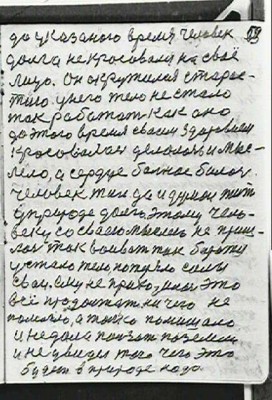 до указаного время. Человек
долго не красовался на своё
лицо. Он окружился старос-
тию. у него тело не стало
так работат как оно
до этого время своим здоровием
красовалас делалос и мыс-
лело, а сердце бол
человек так да и думал жит
в природе долго. Этому чело-
веку со своею мыслею не приш-
лос так воеват так
устало тело, потеряло силы
свои. Ему не приходилос это
всё продолжат. ничего не
помогло, а только помешало
и не дало по земли
и не увидел того чего это
будет в природе надо